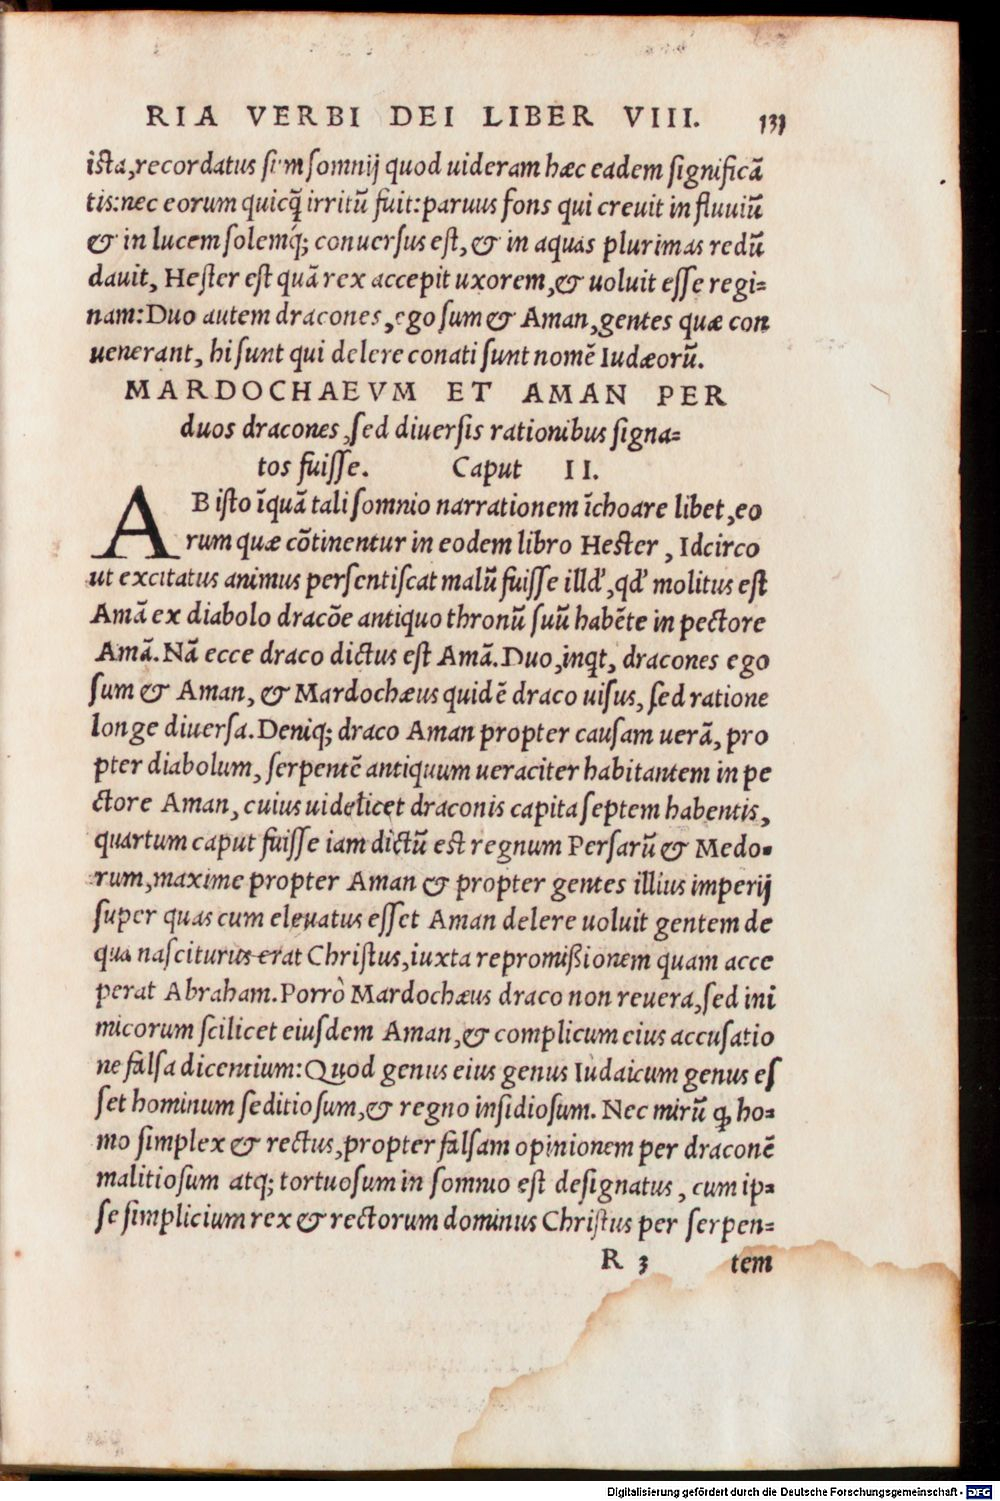 RIA VERBI DEI LIBER VIII. 133
ista, recordatus sum somnij quod uideram hæc eadem significã
tis: nec eorum quicq̃ irritũ fuit: paruus fons qui creuit in fluuiũ
& in lucem solemq́; conuersus est, & in aquas plurimas redũ
dauit, Hester est quã rex accepit uxorem, & uoluit esse regi=
nam: Duo autem dracones, ego sum & Aman, gentes quæ con
uenerant, hi sunt qui delere conati sunt nomẽ Iudæorũ.
MARDOCHAEVM ET AMAN PER
duos dracones, sed diuersis rationibus signa=
tos fuisse. Caput II.
AB isto ĩquã tali somnio narrationem ĩchoare libet, eo
rum quæ cõtinentur in eodem libro Hester, Idcirco
ut excitatus animus persentiscat malũ fuisse illd', qd' molitus est
Amã ex diabolo dracõe antiquo thronũ suũ habẽte in pectore
Amã. Nã ecce draco dictus est Amã. Duo, inqt, dracones ego
sum & Aman, & Mardochæus quidẽ draco uisus, sed ratione
longe diuersa. Deniq; draco Aman propter causam uerã, pro
pter diabolum, serpentẽ antiquum ueraciter habitantem in pe
ctore Aman, cuius uidelicet draconis capita septem habentis,
quartum caput fuisse iam dictũ est regnum Persarũ & Medo=
rum, maxime propter Aman & propter gentes illius imperij
super quas cum eleuatus esset Aman delere uoluit gentem de
qua nasciturus erat Christus, iuxta repromißionem quam acce
perat Abraham. Porrò Mardochæus draco non reuera, sed ini
micorum scilicet eiusdem Aman, & complicum eius accusatio
ne falsa dicentium: Quod genus eius genus Iudaicum genus es
set hominum seditiosum, & regno insidiosum. Nec mirũ ꝙ ho=
mo simplex & rectus, propter falsam opinionem per draconẽ
malitiosum atq; tortuosum in somnio est designatus, cum ip=
se simplicium rex & rectorum dominus Christus per serpen=
R 3 tem
Digitalisierung gefördert durch die Deutsche Forschungsgemeinschaft - DFG